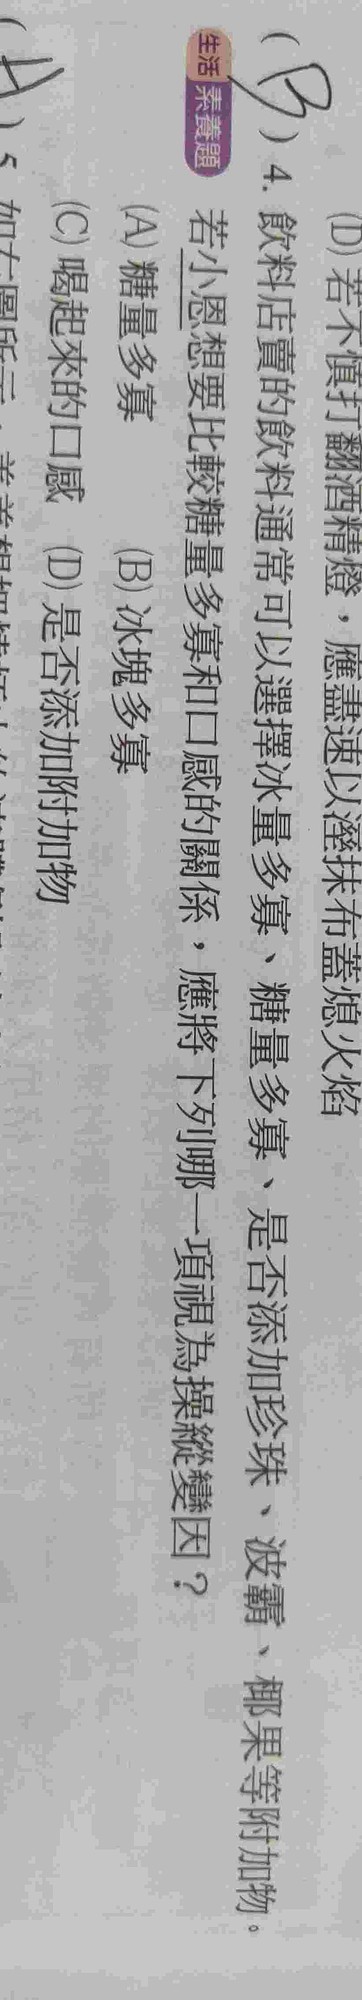 (D) 若不慎打翻酒精燈，應盡速以溼抹布蓋熄火焰
(B) 4. 飲料店賣的飲料通常可以選擇冰量多寡、糖量多寡、是否添加珍珠、波霸、椰果等附加物。
生活 素養題 若小恩想要比較糖量多寡和口感的關係，應將下列哪一項視為操縱變因？
(A) 糖量多寡 (B) 冰塊多寡
(C) 喝起來的口感 (D) 是否添加附加物
(A) 5. 如右圖所示，